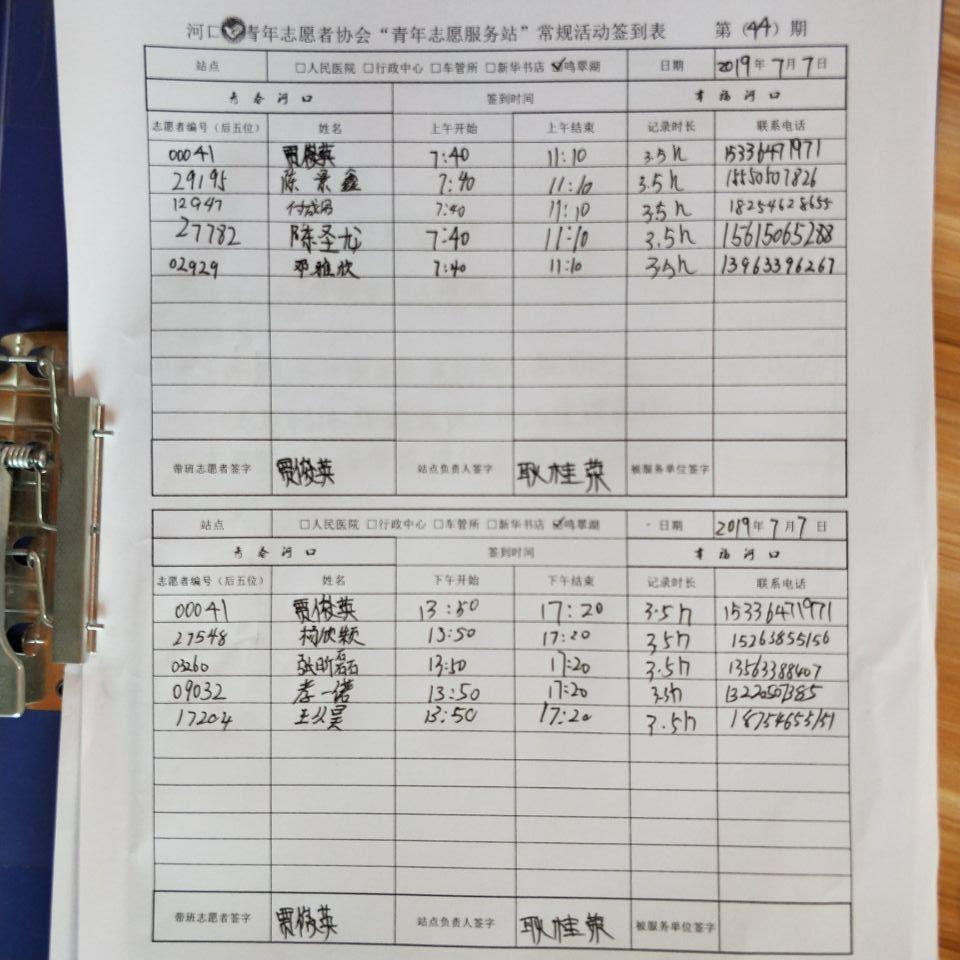 河口青年志愿者协会“青年志愿服务站”常规活动签到表 第(44)期
站点 □人民医院 □行政中心 □车管所 □新华书店 ☑鸣翠湖 日期 2019年7月7日
青春河口 签到时间 幸福河口
志愿者编号(后五位) 姓名 上午开始 上午结束 记录时长 联系电话
00041 贾俊英 7:40 11:10 3.5h 15336471971
29195 陈景鑫 7:40 11:10 3.5h 15550507826
12947 7:40 11:10 3.5h 18254628655
27782 陈圣龙 7:40 11:10 3.5h 15615065288
02929 邓雅欣 7:40 11:10 3.5h 13963396267
带班志愿者签字 贾俊英 站点负责人签字 耿桂荣 被服务单位签字
站点 □人民医院 □行政中心 □车管所 □新华书店 ☑鸣翠湖 日期 2019年7月7日
青春河口 签到时间 幸福河口
志愿者编号(后五位) 姓名 下午开始 下午结束 记录时长 联系电话
00041 贾俊英 13:50 17:20 3.5h 15336471971
27548 杨欣颖 13:50 17:20 3.5h 15263855156
03260 张昕磊 13:50 17:20 3.5h 13563388407
09032 李一诺 13:50 17:20 3.5h 13220507385
17204 13:50 17:20 3.5h 18754655151
带班志愿者签字 贾俊英 站点负责人签字 耿桂荣 被服务单位签字